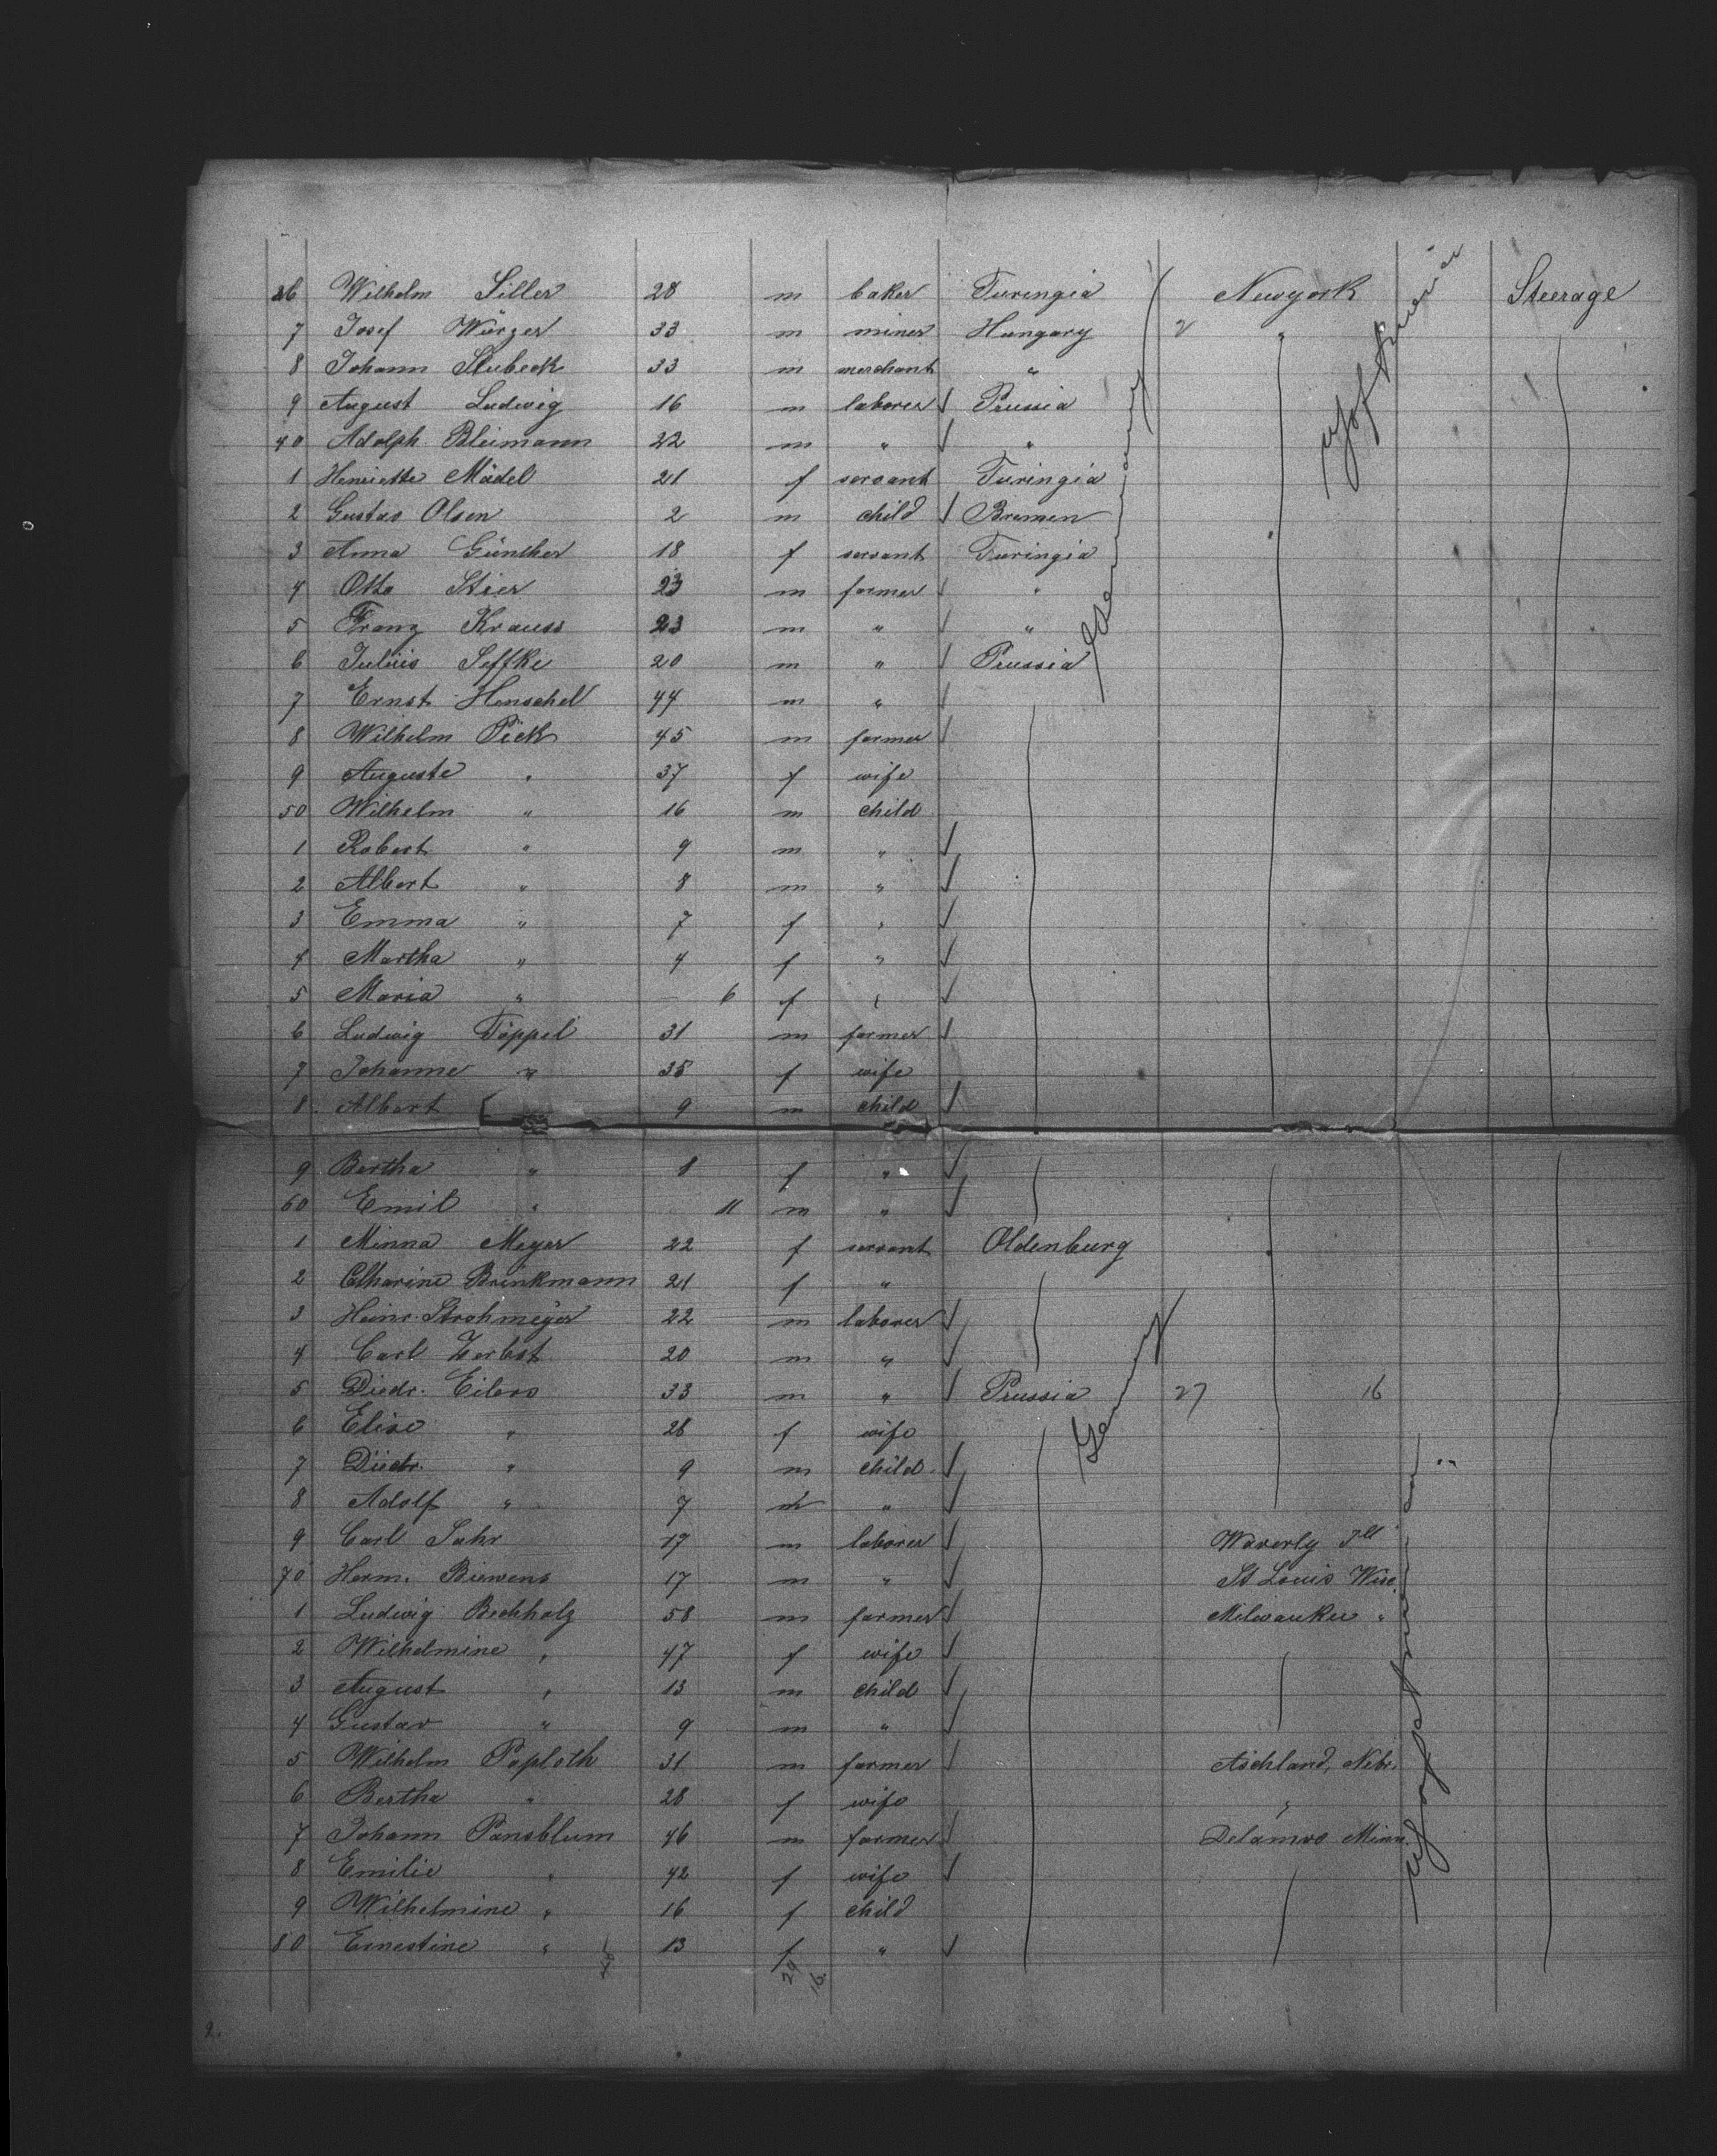 36 Wilhelm Siller 28 m baker Turingia Newyork Steerage
7 Josef Würzer 33 m miner Hungary 2 "
8 Johann Slubeck 33 m merchant "
9 August Ludwig 16 m laborer √ Prussia
40 Adolph Bleimann 22 m " √ "
1 Henriette Mädel 21 f servant Turingia
2 Gustav Olsen 2 m child √ Bremen
3 Anna Günther 18 f servant Turingia
4 Otto Stier 23 m farmer √ "
5 Franz Krauss 23 m " √ "
6 Julius Seffke 20 m " √ Prussia
7 Ernst Henschel 44 m " √
8 Wilhelm Pick 45 m farmer √
9 Auguste " 37 f wife
50 Wilhelm " 16 m child
1 Robert " 9 m " √
2 Albert " 8 m " √
3 Emma " 7 f " √
4 Martha " 4 f " √
5 Maria " - 6 f " √
6 Ludwig Töppel 31 m farmer √
7 Johanne " 35 f wife
8 Albert 9 m child √
9 Bertha " 8 f " √
60 Emil " 11 m " √
1 Minna Meyer 22 f servant Oldenburg
2 Catharine Brinkmann 21 f "
3 Heinr. Strohmeyer 22 m laborer √
4 Carl Zerbst 20 m " √
5 Diedr. Eilers 33 m " √ Prussia 27 16
6 Elise " 28 f wife
7 Diedr. " 9 m child √
8 Adolf " 7 m " √
9 Carl Suhr 17 m laborer √ Waverly Ill
70 Herm. Biewens 17 m " √ St Louis Wisc.
1 Ludwig Bechholz 58 m farmer √ Milwaukee "
2 Wilhelmine " 47 f wife √
3 August " 13 m child √
4 Gustav " 9 m " √
5 Wilhelm Paploth 31 m farmer √ Aschland, Nebr.
6 Bertha " 28 f wife "
7 Johann Pansblum 46 m farmer √ Delamro Minn.
8 Emilie " 42 f wife √
9 Wilhelmine " 16 f child
80 Ernestine " 13 f " √
29 16
Germany
Germany
U S of America
U S of America
2.